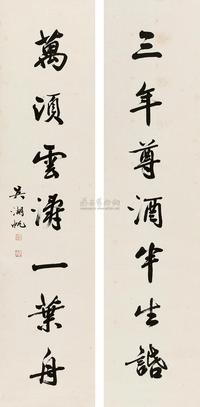 三年尊酒半生諙
萬頃雲濤一葉舟
吳湖帆